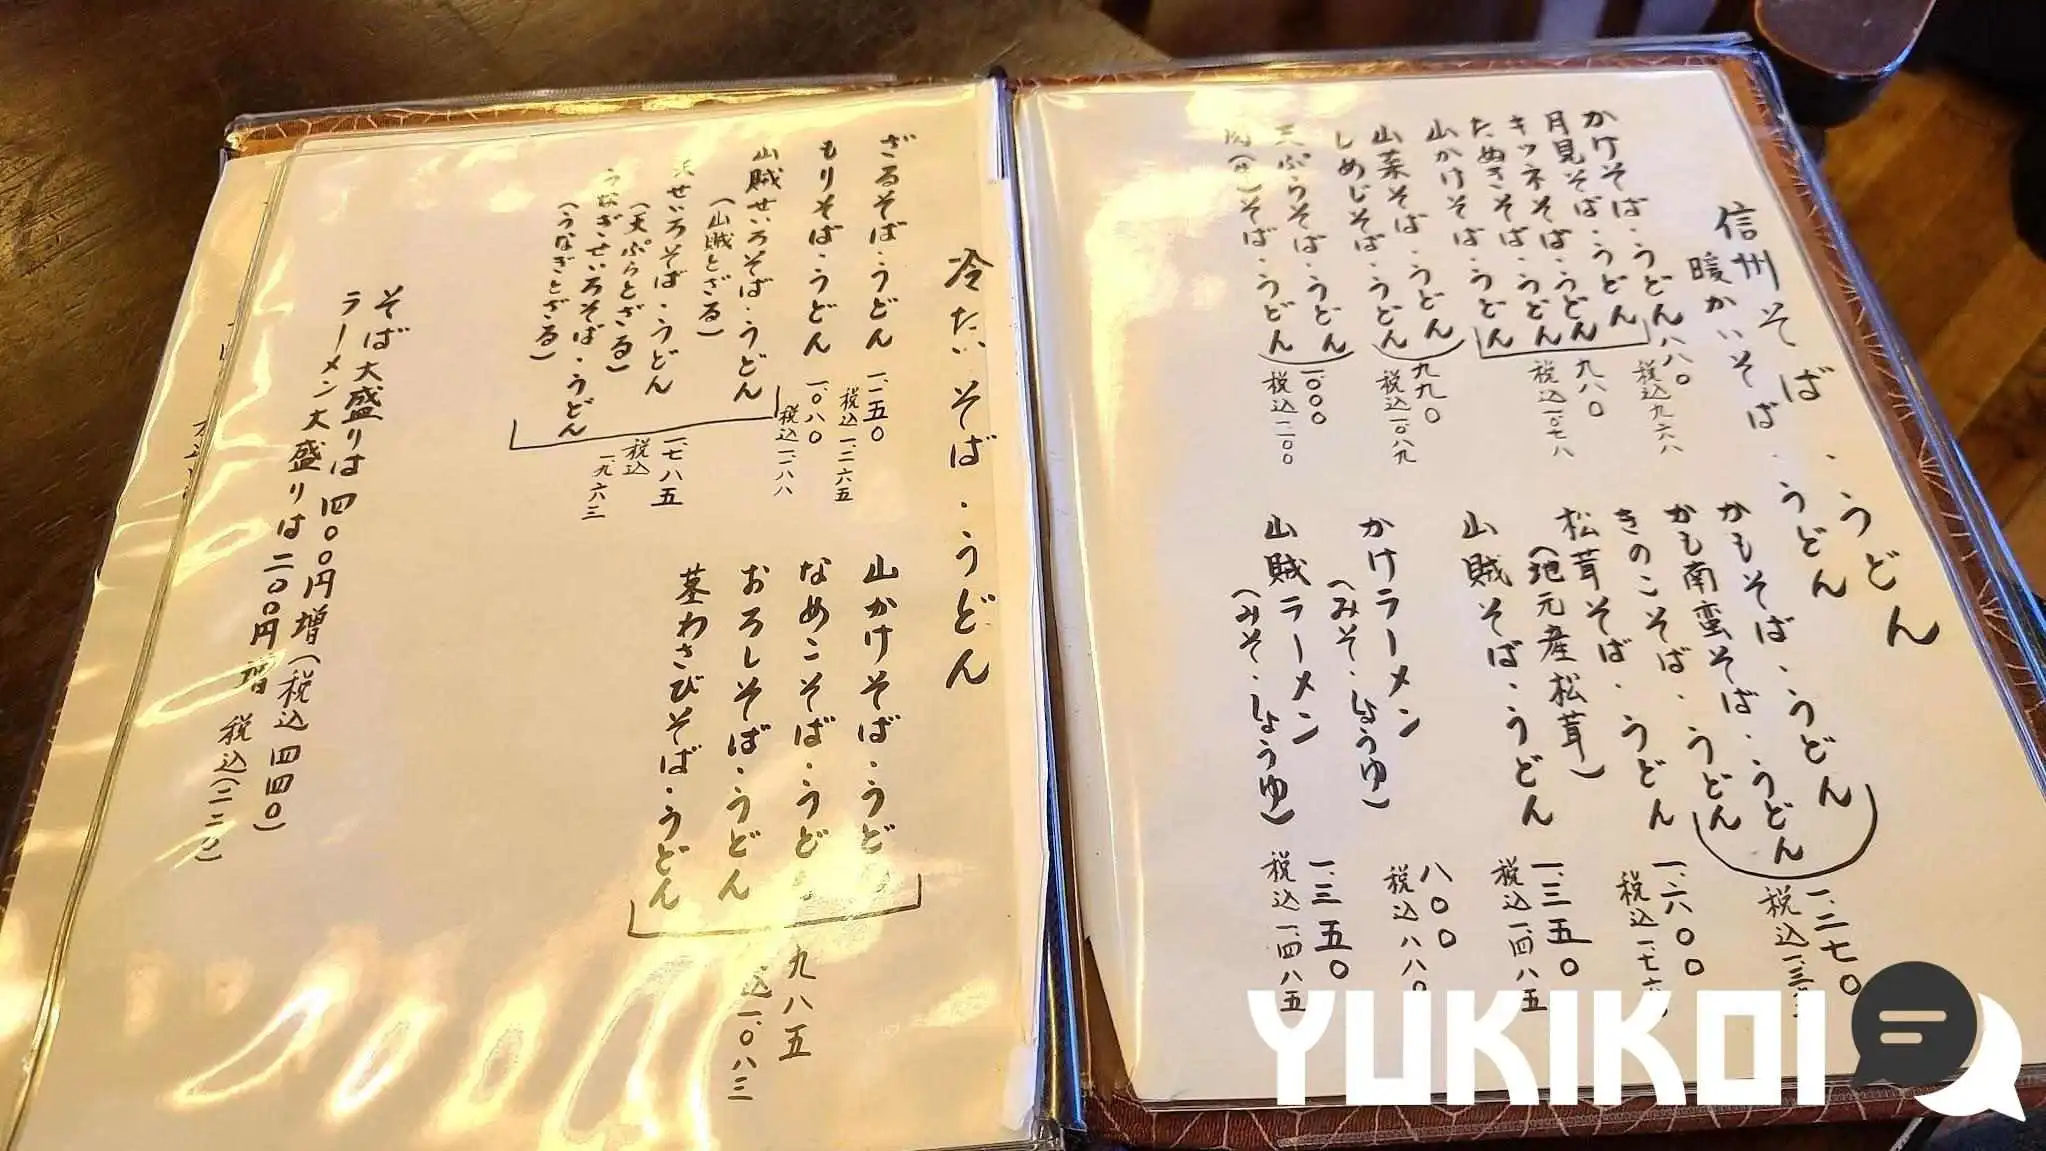 信州そば・うどん
暖かいそば・うどん
かけそば・うどん
八八〇
税込九六八
月見そば・うどん
キツネそば・うどん
たぬきそば・うどん
山かけそば・うどん
九八〇
税込一、〇七八
山菜そば・うどん
しめじそば・うどん
九九〇
税込一、〇八九
天ぷらそば・うどん
そば・うどん
一〇〇〇
税込一一〇〇
かもそば・うどん
かも南蛮そば・うどん
一、二七〇
税込
きのこそば・うどん
松茸そば・うどん
(地元産松茸)
一、六〇〇
税込
山賊そば・うどん
一、三五〇
税込一、四八五
かけラーメン
(みそ・しょうゆ)
八〇〇
税込八八〇
山賊ラーメン
(みそ・しょうゆ)
一、三五〇
税込一、四八五
冷たいそば・うどん
ざるそば・うどん
一、一五〇
税込一、二六五
もりそば・うどん
一、〇八〇
税込一、一八八
山賊せいろそば・うどん
(山賊とざる)
せいろそば・うどん
(天ぷらとざる)
うなぎせいろそば・うどん
(うなぎとざる)
一、七八五
税込
一、九六三
山かけそば・うどん
なめこそば・うどん
おろしそば・うどん
茎わさびそば・うどん
九八五
込一、〇八三
そば大盛りは四〇〇円増(税込四四〇)
ラーメン大盛りは二〇〇円増 税込(二二〇)
YUKIKOI